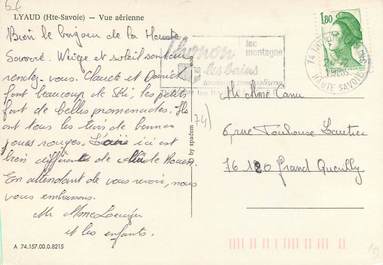 LYAUD (Hte-Savoie) — Vue aérienne
Bien le bonjour de la Haute
Savoie. Neige et soleil sont au
rendez-vous. Claude et Daniel
font beaucoup de ski, les petits
font de belles promenades. Ils
ont tous les tiers de bonnes
joues rouges. L'air ici est
bien différent de celui de Rouen.
En attendant de vous revoir, nous
vous embrassons.
Mr Mme
et les enfants.
A 74.157.00.0.8215
(74)
Thonon
les bains
lac
montagne
74 THONON
HAUTE SAVOIE
1,80
Mr Mme Canu
6 rue Toulouse Lautrec
76120 Grand Quevilly